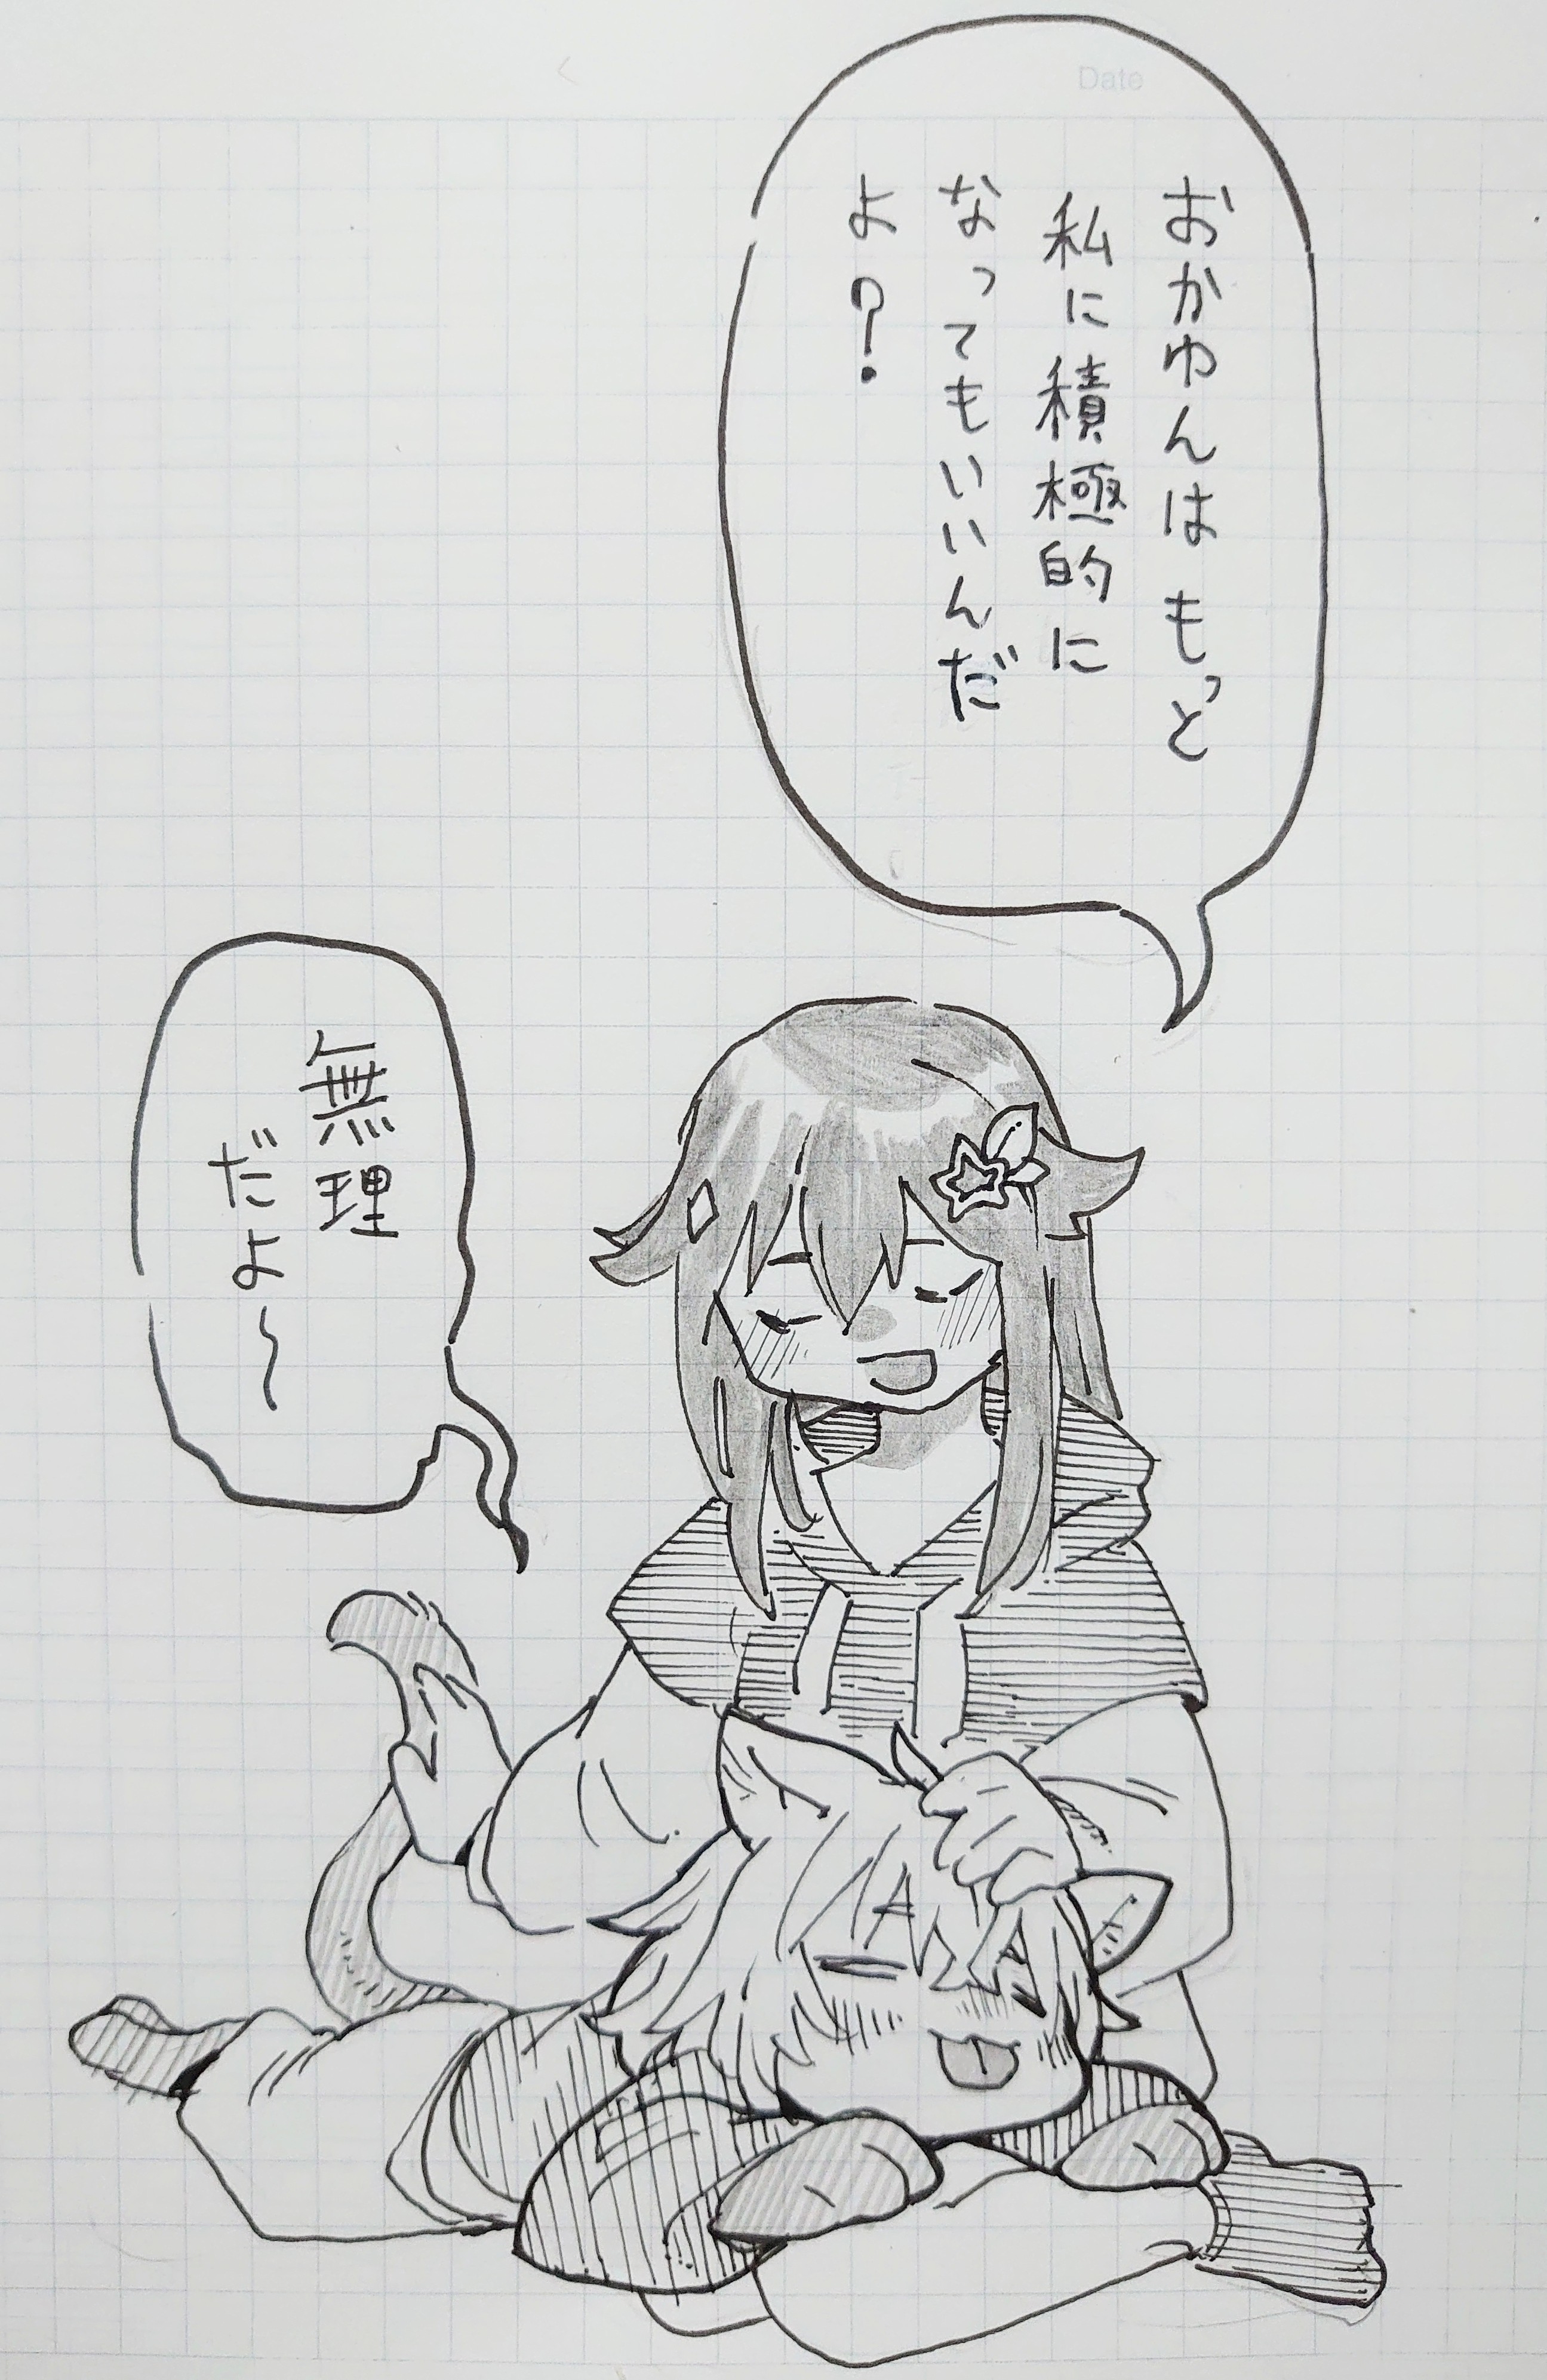 Date
おかゆんはもっと
私に積極的に
なってもいいんだ
よ？
無理
だよ～